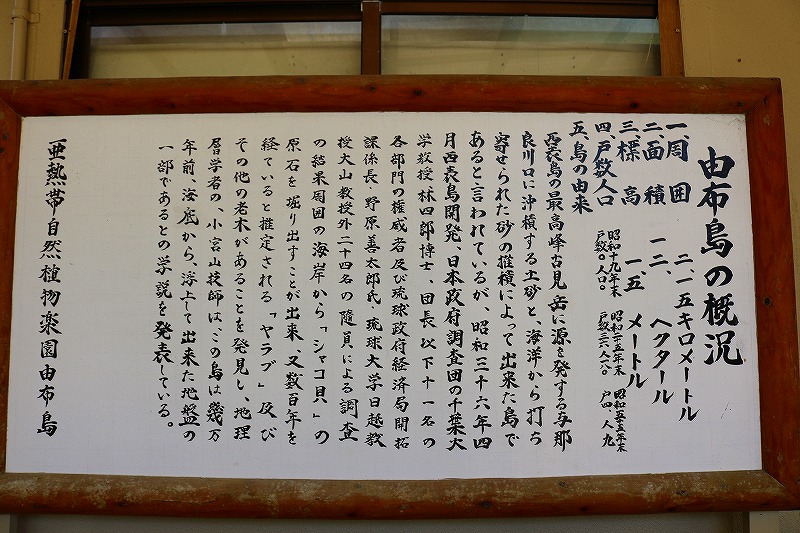 由布島の概況
一、周囲 二、一五キロメートル
二、面積 一二、ヘクタール
三、標高 一五 メートル
四、戸数人口 昭和十九年末 戸数〇人口〇 昭和二十五年末 戸数三六人一八〇 昭和五五年末 戸四 人九
五、島の由来
西表島の最高峰古見岳に源を発する与那
良川口に沖積する土砂と、海洋から打ち
寄せられた砂の推積によって出来た島で
あると言われているが、昭和三十六年四
月西表島開発、日本政府調査団の千葉大
学教授、林四郎博士、団長以下十一名の
各部門の権威者及び琉球政府経済局開拓
課係長・野原善太郎氏、琉球大学日越教
授大山教授外二十四名の随員による調査
の結果周囲の海岸から「シャコ貝」の
原石を堀り出すことが出来、又数百年を
経ていると推定される「ヤラブ」及び
その他の老木があることを発見し、地理
層学者の、小宮山技師は、この島は幾万
年前、海底から、浮上して出来た地盤の
一部であるとの学説を発表している。
亜熱帯自然植物楽園由布島